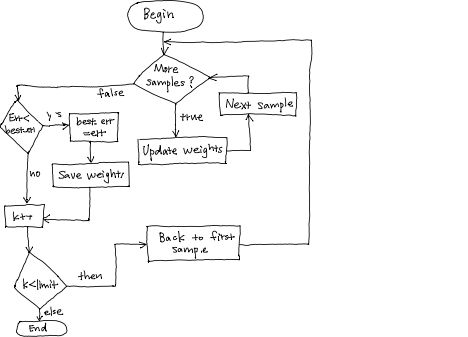 Begin
More
samples?
false
true
Next sample
Update weights
Err<
best.err
yes
best err
=err
Save weights
no
k++
k<limit
then
Back to first
sample
else
End